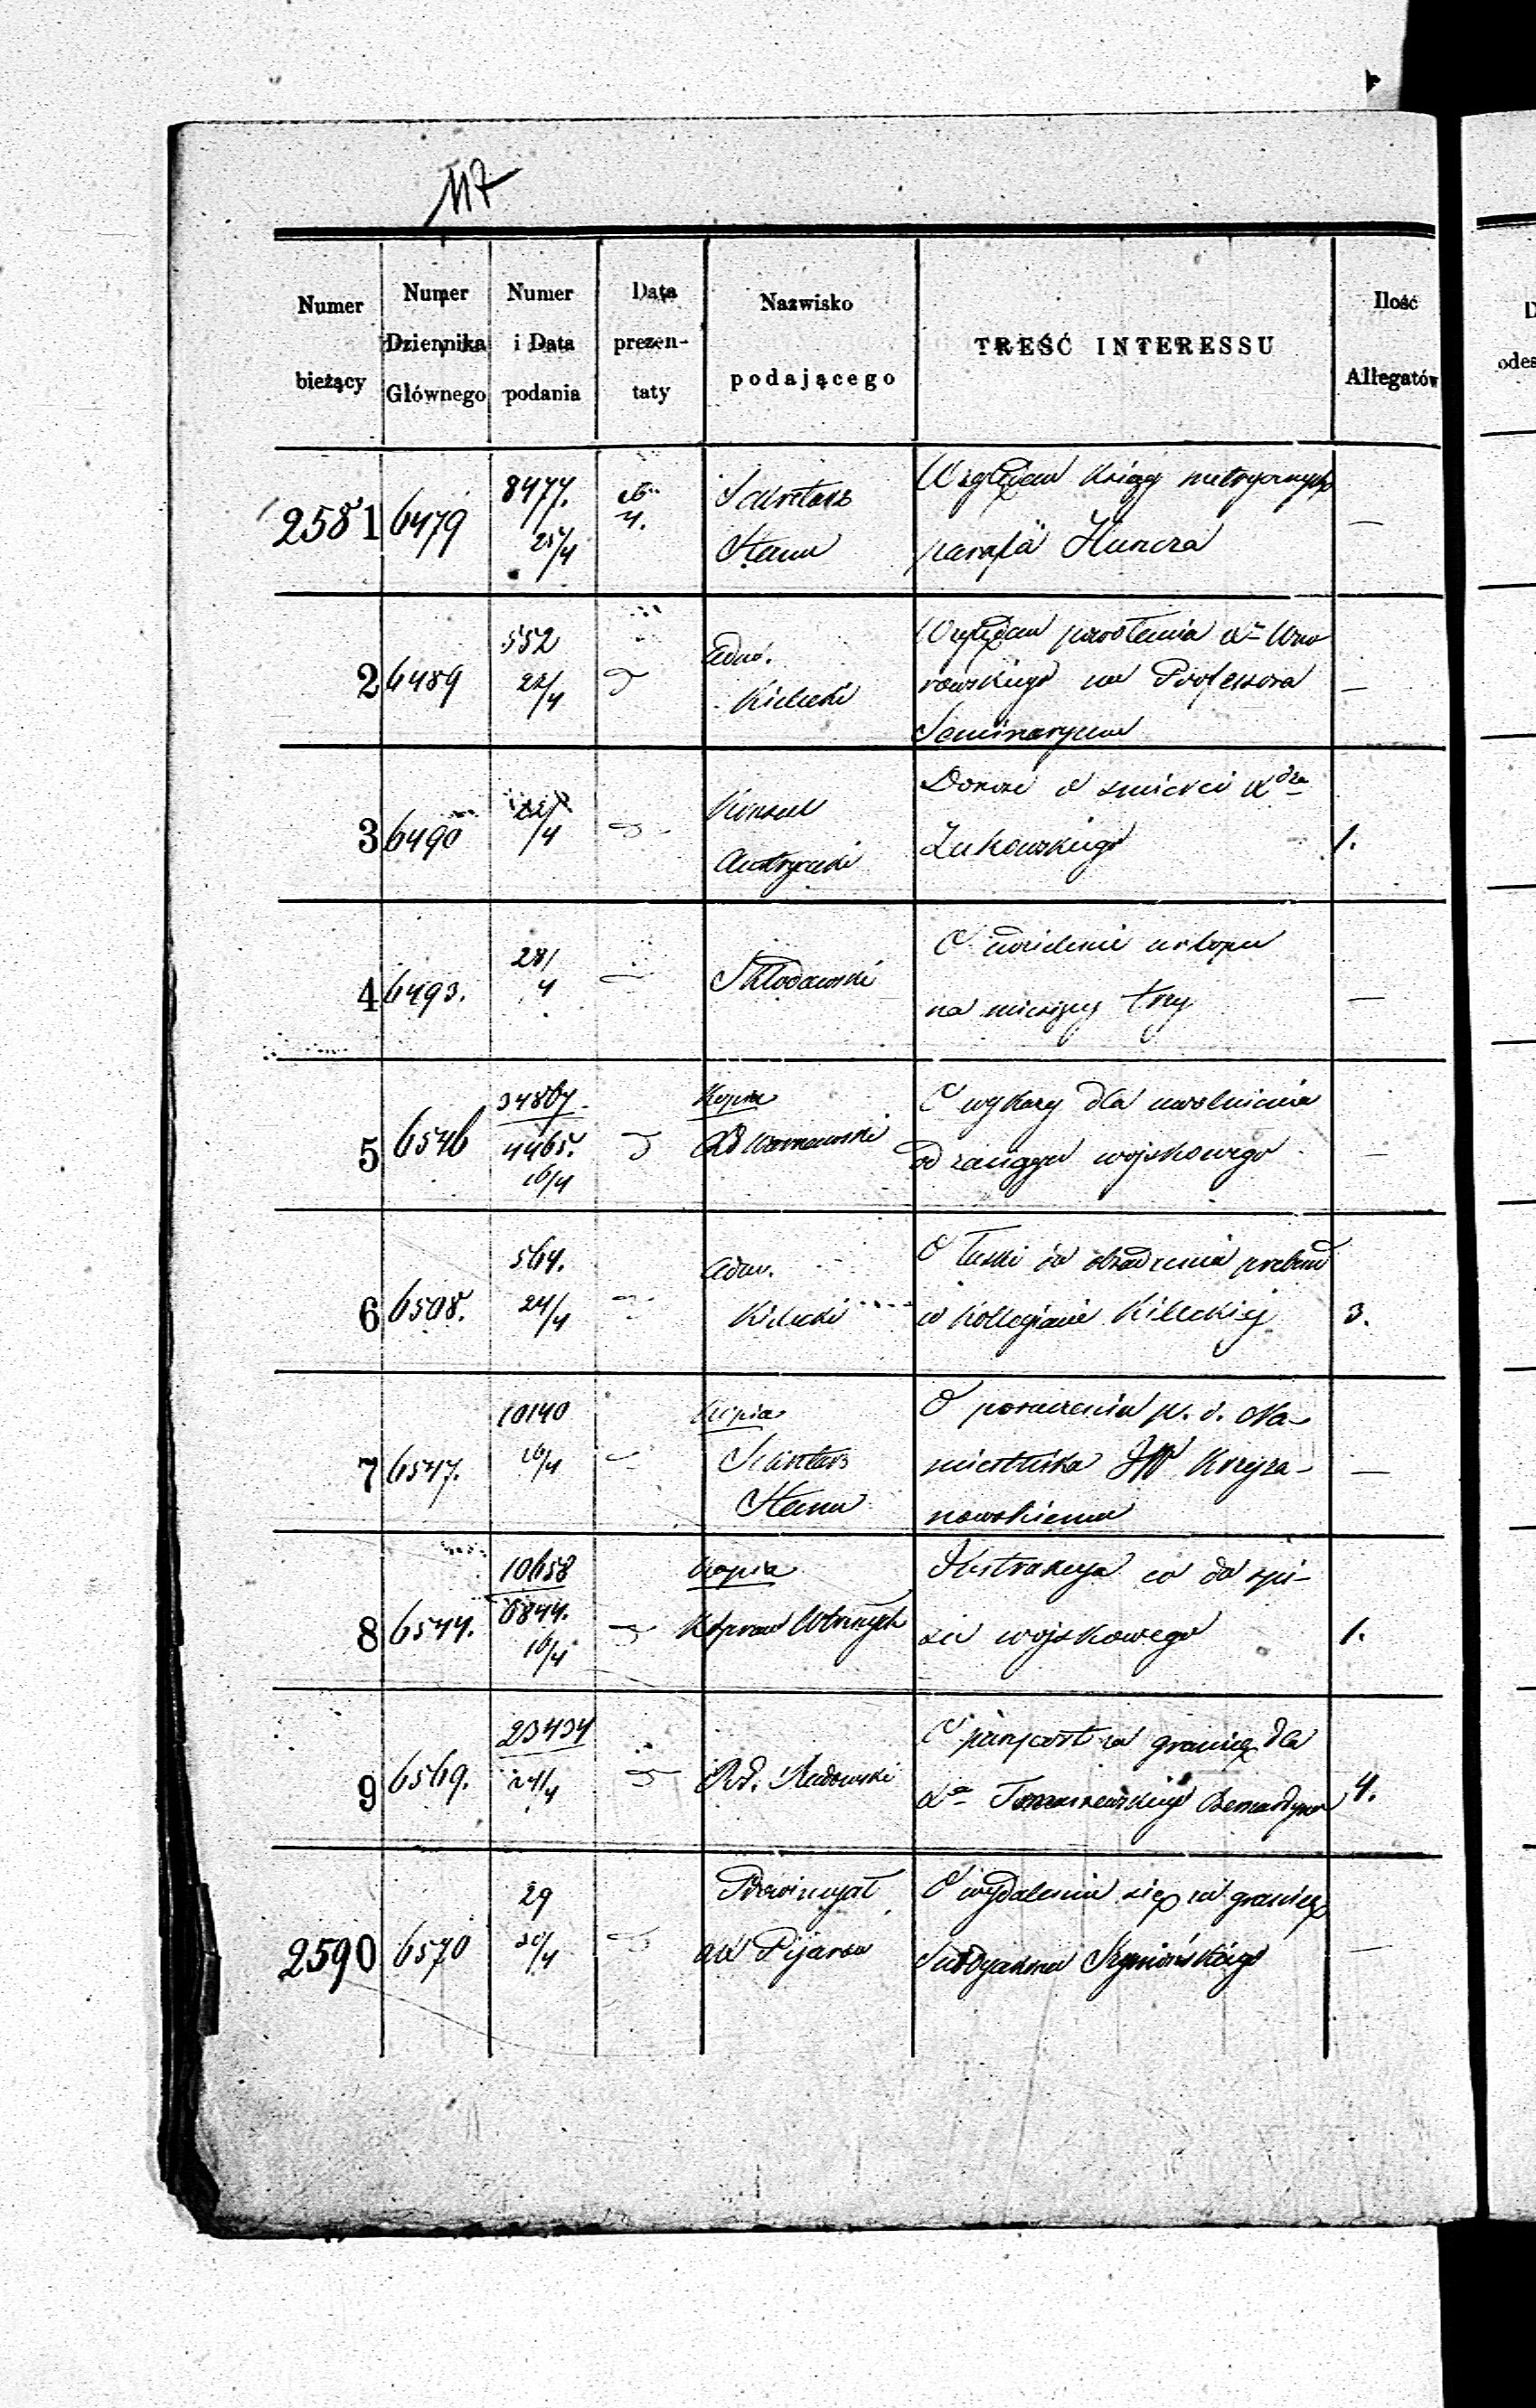 117
Numer bieżący
Numer Dziennika Głównego
Numer i Data podania
Data prezen-taty
Nazwisko podającego
TREŚĆ INTERESSU
Ilość Allegatów
2581 6479 8477. 25/4 26 4. Sekretarz Stanu
Względem Xsiąg metrycznych
parafii Huncza —
2 6489 552 22/4 Adm. Kielecki
Względem powołania
rowskiego na Professora —
Seminaryum
3 6490 /4 Konsul Austryacki
Donosi o śmierci Xdza
Żukowskiego 1.
4 6493. 28/4 Skłodowski
O udzielenie urlopu
na miesięcy trzy —
5 6546 34867 4465. 16/4 Kopia
O wykazy dla uwolnienia
od zaciągu wojskowego —
6 6508. 564. 24/4 Adm. Kielecki
O obsadzenia prebend
w Kollegiacie Kieleckiej 3.
7 6547. 10140 26/4 Kopia Sekretarz Stanu
O poruczeniu p. o. Na-
miestnika JW Krzyża-
nowskiemu —
8 6544. 10658 6844. 16/4 Kopia
co do spi-
su wojskowego 1.
9 6569. 23434 24/4 Rd. Radomski
O paszport za granicę dla
Xa Tomaszewskiego Bernardyna 4.
2590 6570 29 20/4 Prowincyał XX Pijarów
O wydaleniu się za granicę
Subdyakona Szymańskiego —
D
odes